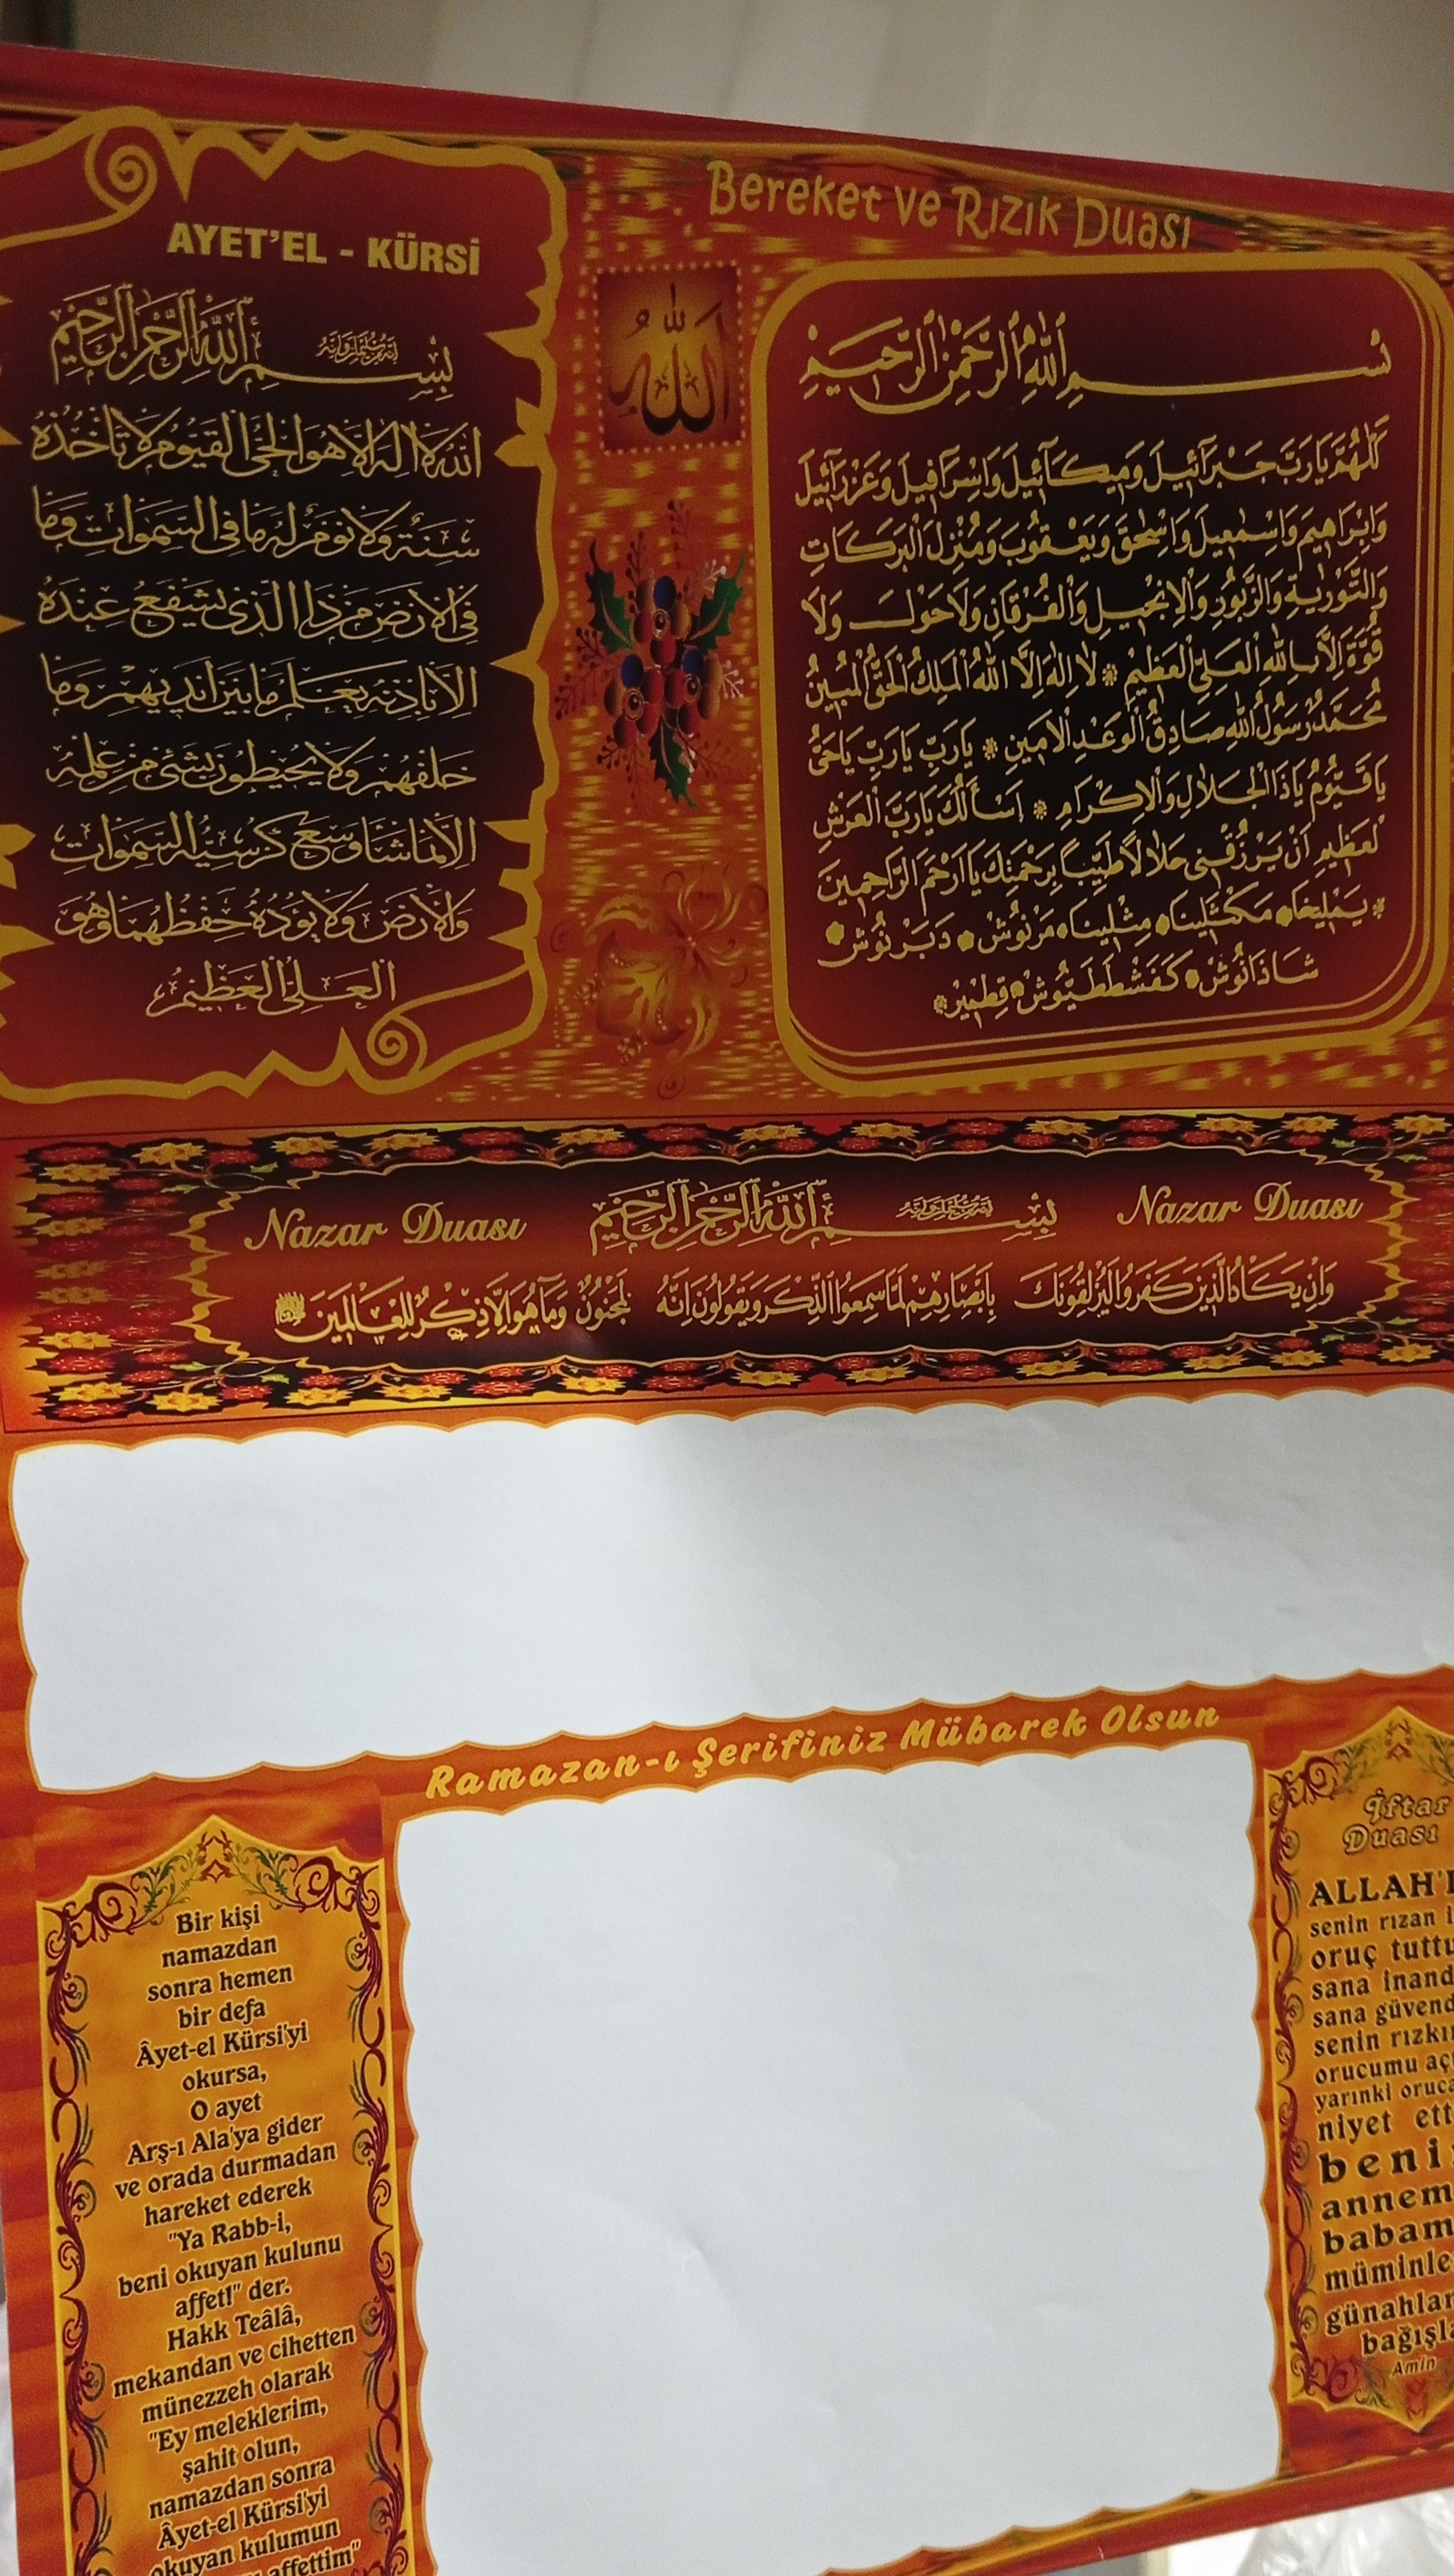 AYET'EL - KÜRSİ
بِسْمِ اللهِ الرَّحْمٰنِ الرَّحِيمِ
اَللهُ لَا اِلٰهَ اِلَّا هُوَ الْحَيُّ الْقَيُّومُ لَا تَأْخُذُهُ
سِنَةٌ وَلَا نَوْمٌ لَهُ مَا فِي السَّمٰوَاتِ وَمَا
فِي الْاَرْضِ مَنْ ذَا الَّذِي يَشْفَعُ عِنْدَهُ
اِلَّا بِاِذْنِهِ يَعْلَمُ مَا بَيْنَ اَيْدِيهِمْ وَمَا
خَلْفَهُمْ وَلَا يُحِيطُونَ بِشَيْءٍ مِنْ عِلْمِهِ
اِلَّا بِمَا شَاءَ وَسِعَ كُرْسِيُّهُ السَّمٰوَاتِ
وَالْاَرْضَ وَلَا يَؤُدُهُ حِفْظُهُمَا وَهُوَ
الْعَلِيُّ الْعَظِيمُ
الله
Bereket ve Rızık Duası
بِسْمِ اللهِ الرَّحْمٰنِ الرَّحِيمِ
اَللّٰهُمَّ يَارَبَّ جَبْرَآئِيلَ وَمِيكَآئِيلَ وَاِسْرَافِيلَ وَعَزْرَآئِيلَ
وَاِبْرَاهِيمَ وَاِسْمٰعِيلَ وَاِسْحٰقَ وَيَعْقُوبَ وَمُنْزِلَ الْبَرَكَاتِ
وَالتَّوْرٰيةِ وَالزَّبُورِ وَالْاِنْجِيلِ وَالْفُرْقَانِ وَلَا حَوْلَ وَلَا
قُوَّةَ اِلَّا بِاللهِ الْعَلِيِّ الْعَظِيمِ * لَا اِلٰهَ اِلَّا اللهُ الْمَلِكُ الْحَقُّ الْمُبِينُ
مُحَمَّدٌ رَسُولُ اللهِ صَادِقُ الْوَعْدِ الْاَمِينِ * يَارَبِّ يَارَبِّ يَاحَيُّ
يَاقَيُّومُ يَاذَا الْجَلَالِ وَالْاِكْرَامِ * اَسْأَلُكَ يَارَبَّ الْعَرْشِ
الْعَظِيمِ اَنْ يَرْزُقَنِي حَلَالًا طَيِّبًا بِرَحْمَتِكَ يَا اَرْحَمَ الرَّاحِمِينَ
* يَمْلِيخَا • مَكْثَلِينَا • مِثْلِينَا • مَرْنُوشْ • دَبَرْنُوشْ •
شَاذَنُوشْ • كَفَشْطَطَيُّوشْ • قِطْمِيرْ *
Nazar Duası
بِسْمِ اللهِ الرَّحْمٰنِ الرَّحِيمِ
Nazar Duası
وَاِنْ يَكَادُ الَّذِينَ كَفَرُوا لَيُزْلِقُونَكَ بِاَبْصَارِهِمْ لَمَّا سَمِعُوا الذِّكْرَ وَيَقُولُونَ اِنَّهُ لَمَجْنُونٌ وَمَا هُوَ اِلَّا ذِكْرٌ لِلْعَالَمِينَ
Ramazan-ı Şerifiniz Mübarek Olsun
Bir kişi
namazdan
sonra hemen
bir defa
Âyet-el Kürsi'yi
okursa,
O ayet
Arş-ı Ala'ya gider
ve orada durmadan
hareket ederek
"Ya Rabb-i,
beni okuyan kulunu
affet!" der.
Hakk Teâlâ,
mekandan ve cihetten
münezzeh olarak
"Ey meleklerim,
şahit olun,
namazdan sonra
Âyet-el Kürsi'yi
okuyan kulumun
affettim"
İftar
Duası
ALLAH'I
senin rızan i
oruç tuttu
sana inand
sana güvend
senin rızkı
orucumu aç
yarınki oruc
niyet ett
beni
annem
babam
müminle
günahlar
bağışla
Amin